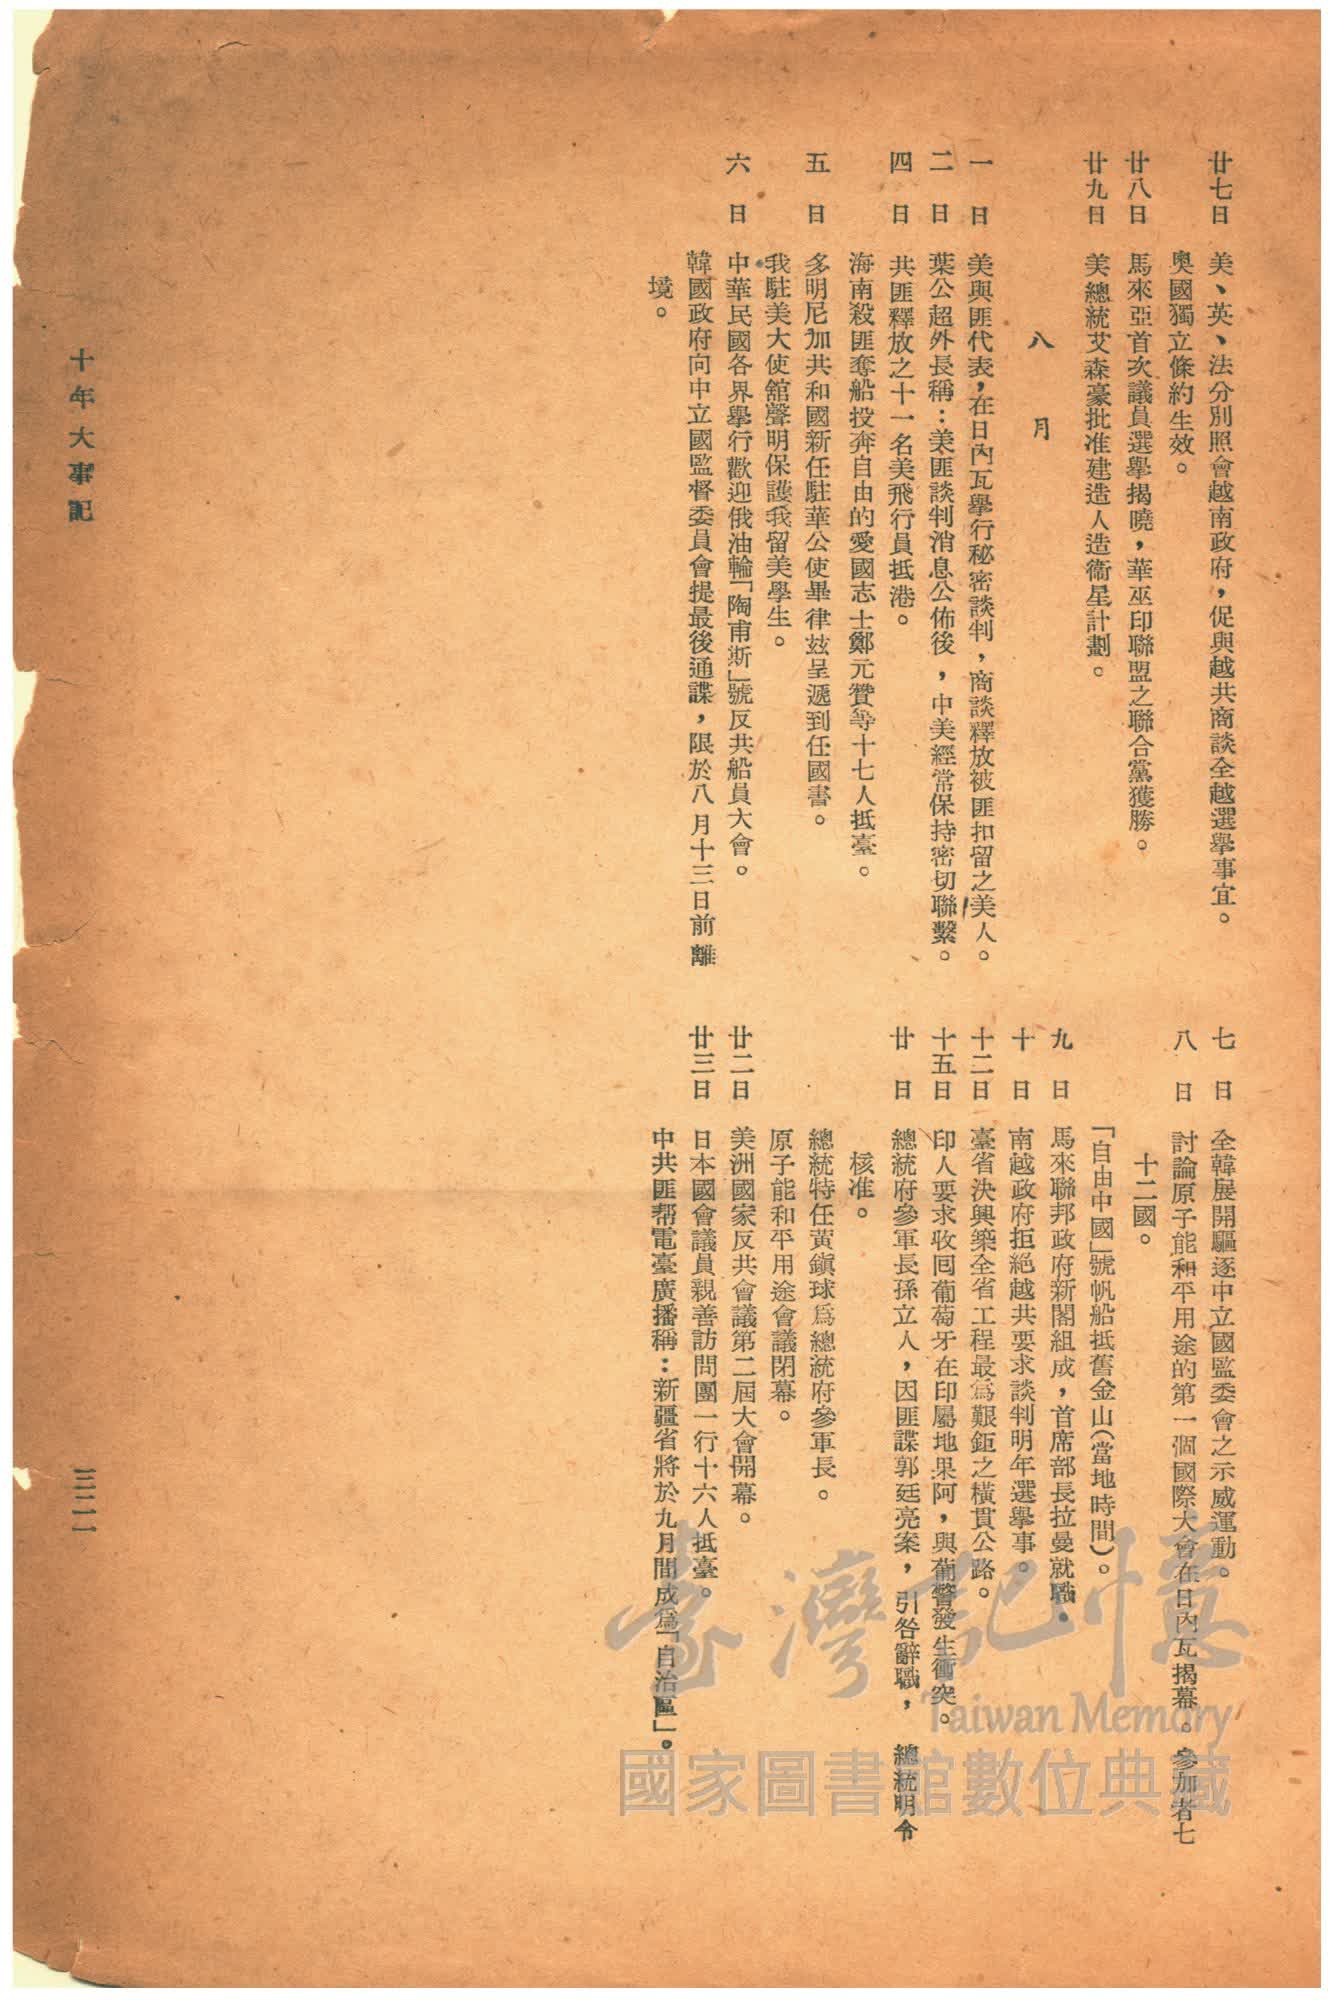 廿七日　美、英、法分別照會越南政府，促與越共商談全越選舉事宜。
奧國獨立條約生效。
廿八日　馬來亞首次議員選舉揭曉，華巫印聯盟之聯合黨獲勝。
廿九日　美總統艾森豪批准建造人造衞星計劃。
八月
一日　美與匪代表，在日內瓦舉行秘密談判，商談釋放被匪扣留之美人。
二日　葉公超外長稱：美匪談判消息公佈後，中美經常保持密切聯繫。
四日　共匪釋放之十一名美飛行員抵港。
海南殺匪奪船投奔自由的愛國志士鄭元贊等十七人抵臺。
五日　多明尼加共和國新任駐華公使畢律玆呈遞到任國書。
我駐美大使舘聲明保護我留美學生。
六日　中華民國各界舉行歡迎俄油輪「陶甫斯」號反共船員大會。
韓國政府向中立國監督委員會提最後通諜，限於八月十三日前離
境。
七日　全韓展開驅逐中立國監委會之示威運動。
八日　討論原子能和平用途的第一個國際大會在日內瓦揭幕。參加者七
十二國。
「自由中國」號帆船抵舊金山（當地時間）。
九日　馬來聯邦政府新閣組成，首席部長拉曼就職。
十日　南越政府拒絕越共要求談判明年選舉事。
十二日　臺省決興築全省工程最爲艱鉅之橫貫公路。
十五日　印人要求收囘葡萄牙在印屬地果阿，與葡警發生衝突。
廿日　總統府參軍長孫立人，因匪諜郭廷亮案，引咎辭職，　總統明令
核准。
總統特任黃鎭球爲總統府參軍長。
原子能和平用途會議閉幕。
廿二日　美洲國家反共會議第二屆大會開幕。
廿三日　日本國會議員親善訪問團一行十六人抵臺。
中共匪帮電臺廣播稱：新疆省將於九月間成爲「自治區」。
十年大事記
三二一
臺灣記憶
Taiwan Memory
國家圖書館數位典藏